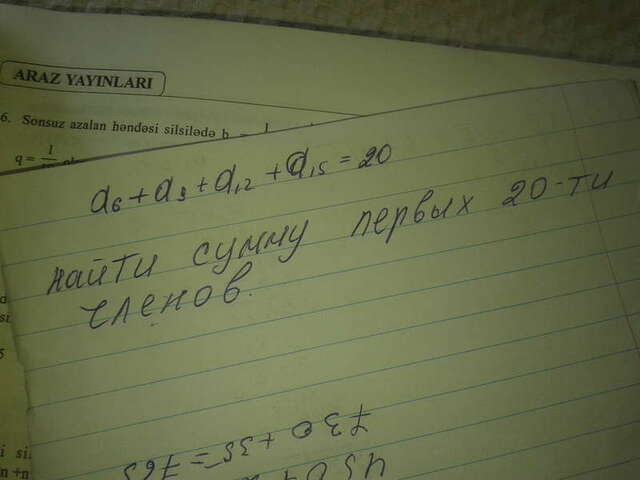 ARAZ YAYINLARI
6. Sonsuz azalan həndəsi silsilədə b
q = 1
a₆ + a₉ + a₁₂ + a₁₅ = 20
найти сумму первых 20-ти
членов.
730 + 35 = 765